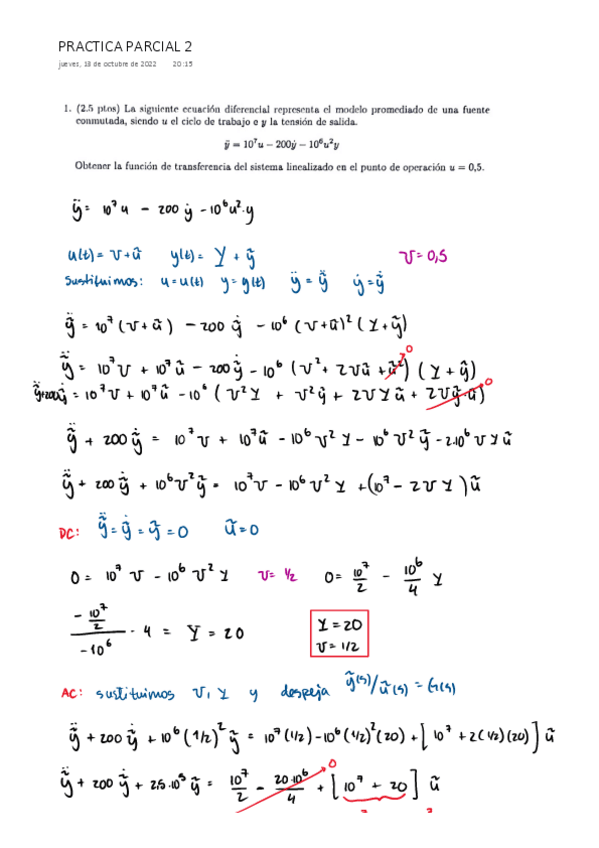 PRACTICA PARCIAL 2
jueves, 13 de octubre de 2022 20:15
1. (2.5 ptos) La siguiente ecuación diferencial representa el modelo promediado de una fuente
conmutada, siendo u el ciclo de trabajo e y la tensión de salida.
ÿ = 10⁷u − 200ẏ − 10⁶u²y
Obtener la función de transferencia del sistema linealizado en el punto de operación u = 0,5.
ÿ = 10⁷ u − 200 ẏ − 10⁶u²·y
u(t) = U + ũ y(t) = Y + ỹ U = 0,5
Sustituimos: u = u(t) y = y(t) ÿ = ỹ̈ ẏ = ỹ̇
ỹ̈ = 10⁷ (U + ũ) − 200 ỹ̇ − 10⁶ (U + ũ)² (Y + ỹ)
ỹ̈ = 10⁷U + 10⁷ũ − 200ỹ̇ − 10⁶ (U² + 2Uũ + ũ²) (Y + ỹ) 0
ỹ̈ + 200ỹ̇ = 10⁷U + 10⁷ũ − 10⁶ (U²Y + U²ỹ + 2UYũ + 2Uỹ·ũ) 0
ỹ̈ + 200 ỹ̇ = 10⁷U + 10⁷ũ − 10⁶U²Y − 10⁶U²ỹ − 2·10⁶UYũ
ỹ̈ + 200ỹ̇ + 10⁶U²ỹ = 10⁷U − 10⁶U²Y + (10⁷ − 2UY)ũ
DC: ỹ̈ = ỹ̇ = ỹ = 0 ũ = 0
0 = 10⁷ U − 10⁶ U² Y U = ½ 0 = 10⁷/2 − 10⁶/4 Y
(−10⁷/2)/(−10⁶) · 4 = Y = 20 Y = 20
U = 1/2
AC: sustituimos U, Y y despeja ỹ(s)/ũ(s) = G(s)
ỹ̈ + 200 ỹ̇ + 10⁶ (1/2)² ỹ = 10⁷(1/2) − 10⁶(1/2)²(20) + [10⁷ + 2(1/2)(20)] ũ
ỹ̈ + 200 ỹ̇ + 2,5·10⁵ ỹ = 10⁷/2 − 20·10⁶/4 + [10⁷ + 20] ũ 0